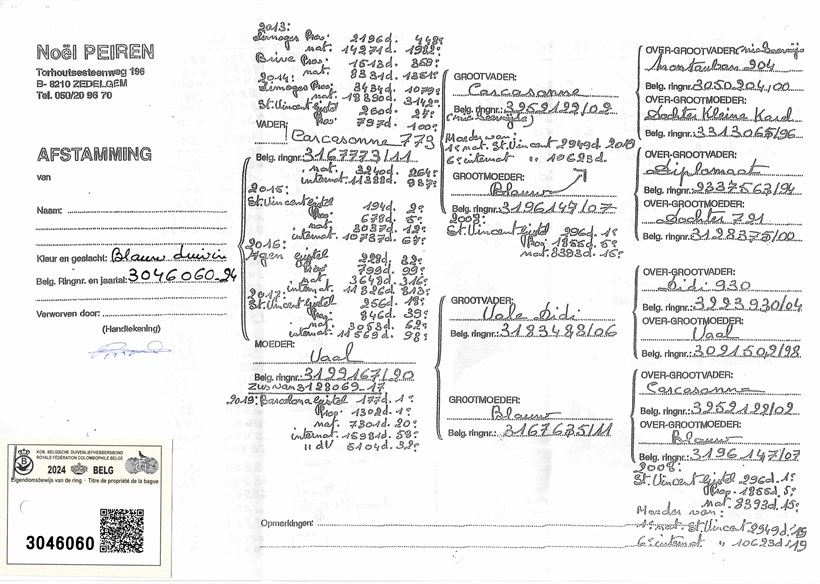 Noël PEIREN
Torhoutsesteenweg 196
B- 8210 ZEDELGEM
Tel. 050/20 96 70
AFSTAMMING
van
Naam:
Kleur en geslacht: Blauw duivin
Belg. Ringnr. en jaartal: 3046060-24
Verworven door:
(Handtekening)
KON. BELGISCHE DUIVENLIEFHEBBERSBOND
ROYALE FÉDÉRATION COLOMBOPHILE BELGE
2024 BELG
Eigendomsbewijs van de ring - Titre de propriété de la bague
3046060
2013:
Limoges Prov: 2196d. 448e
nat. 14271d. 1982e
Brive Prov: 1513d. 359e
nat. 8331d. 1351e
2014:
Limoges Prov: 3434d. 1079e
nat. 18390d. 3142e
St.Vincent gistel 260d. 27e
Prov: 797d. 100e
VADER:
Carcasonne 773
Belg. ringnr.: 3167773/11
nat. 3240d. 264e
internat. 11388d. 937e
2015:
St.Vincent gistel 194d. 2e
Prov 678d. 5e
nat. 3037d. 12e
internat. 10737d. 67e
2016:
Agen gistel 228d. 32e
Prov 799d. 99e
nat. 3648d. 316e
internat. 11826d. 813e
2017:
St.Vincent gistel 256d. 18e
Prov: 846d. 39e
nat. 3053d. 62e
internat. 11569d. 98e
MOEDER:
Vaal
Belg. ringnr.: 3199167/20
Zus van 3128069-17
2019: Barcelona gistel 177d. 1e
Prov. 1302d. 1e
nat. 7301d. 20e
internat. 15981d. 58e
" dV 5104d. 32e
GROOTVADER:
Carcasonne
Belg. ringnr.: 3252122/02
Moeder van:
1e nat. St.Vincent 2949d. 2019
6e internat " 10623d.
GROOTMOEDER:
Blauw
Belg. ringnr.: 3196147/07
2008:
St.Vincent gistel 296d. 1e
Prov 1855d. 5e
nat. 8393d. 15e
GROOTVADER:
Vale Didi
Belg. ringnr.: 3183488/06
GROOTMOEDER:
Blauw
Belg. ringnr.: 3167635/11
OVER-GROOTVADER:
Montauban 204
Belg. ringnr.: 3050204/00
OVER-GROOTMOEDER:
Dochter Kleine Kard
Belg. ringnr.: 3313065/96
OVER-GROOTVADER:
Diplomaat
Belg. ringnr.: 2337563/94
OVER-GROOTMOEDER:
Dochter 721
Belg. ringnr.: 3128375/00
OVER-GROOTVADER:
Didi 930
Belg. ringnr.: 3223930/04
OVER-GROOTMOEDER:
Vaal
Belg. ringnr.: 3021502/98
OVER-GROOTVADER:
Carcasonne
Belg. ringnr.: 3252122/02
OVER-GROOTMOEDER:
Blauw
Belg. ringnr.: 3196147/07
2008:
St.Vincent gistel 296d. 1e
Prov. 1855d. 5e
nat. 8393d. 15e
Moeder van:
1e nat. St.Vincent 2949d. 19
6e internat " 10623d. 19
Opmerkingen: